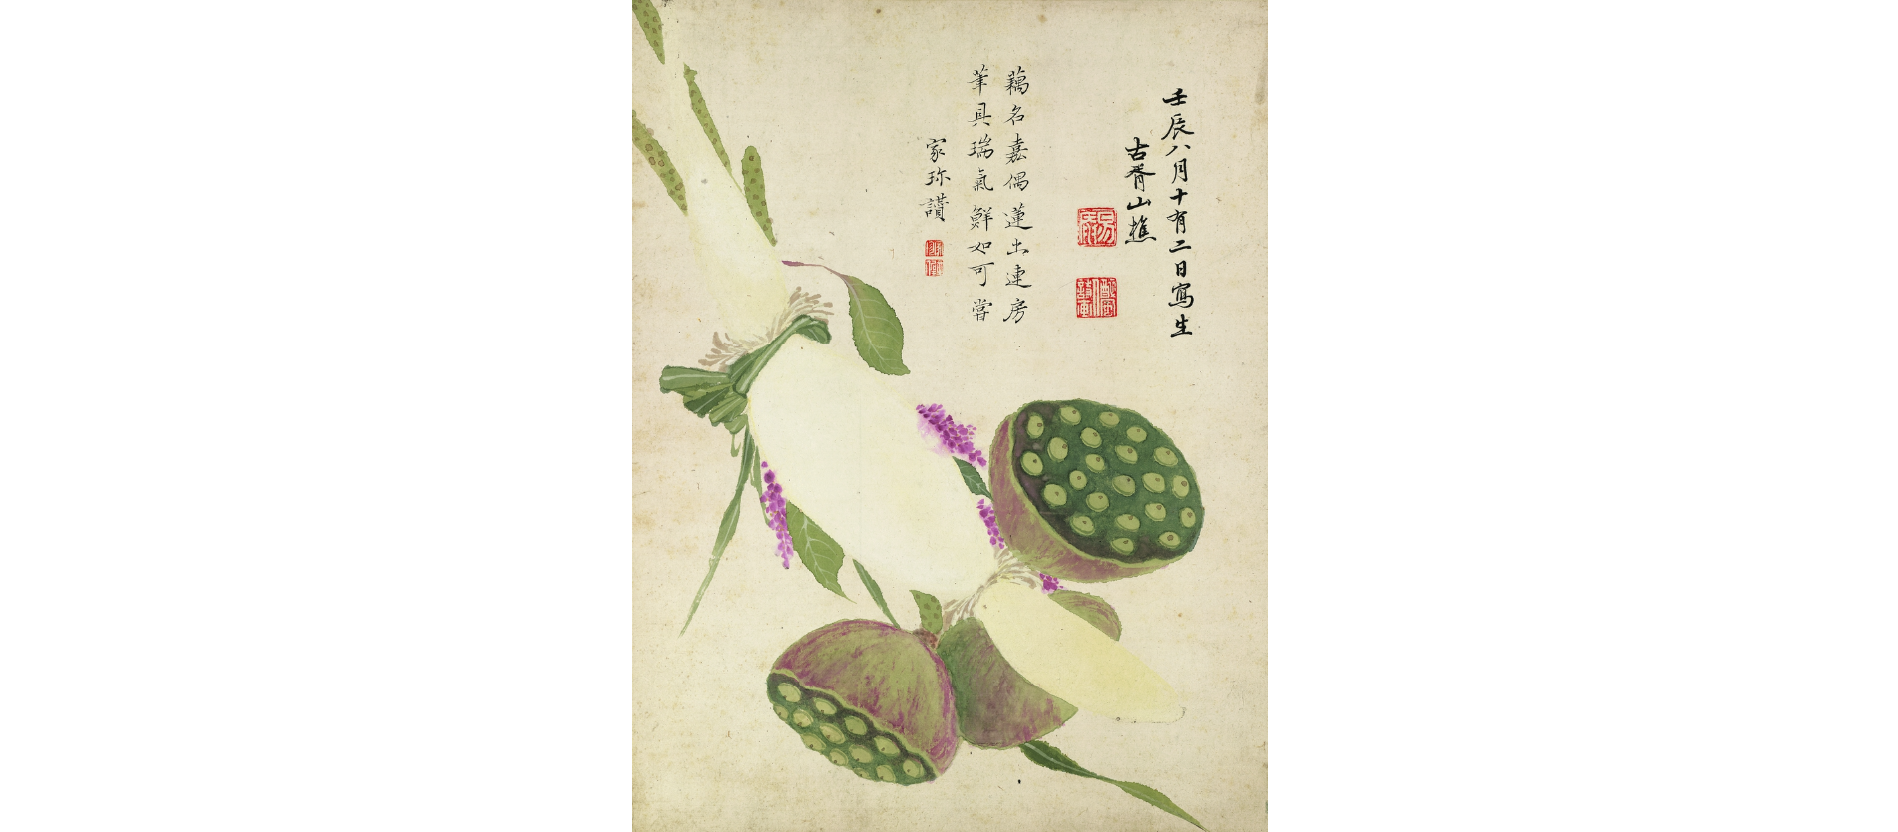 壬辰八月十有二日寫生
古脊山樵
藕名嘉偶蓮出連房
筆具瑞氣鮮如可嘗
家珎讚